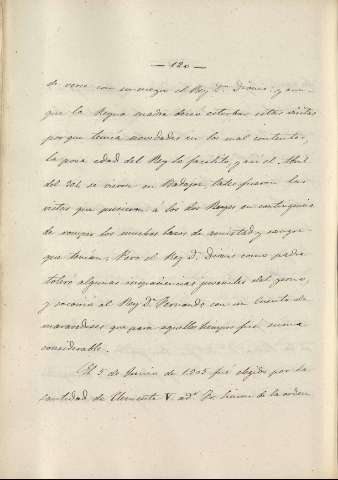 — 120 —
de verse con su suegro el Rey Dn. Dionis: y aun-
que la Reyna madre deseó estorbar estas vistas
porque temía novedades en los mal contentos,
la poca edad del Rey lo facilitó y así el Abril
del 304 se vieron en Badajoz, tales fueron las
vistas que pusieron á los dos Reyes en contingencia
de romper los muchos lazos de amistad y sangre
que tenían; Pero el Rey Dn. Dionis como padre
toleró algunas impaciencias juveniles del yerno,
y socorrió al Rey Dn. Fernando con un cuento de
maravedises que para aquellos tiempos fué suma
considerable.
El 5 de Junio de 1305 fué elegido por la
Santidad de Clemente V. adr. Fr. Simon de la orden